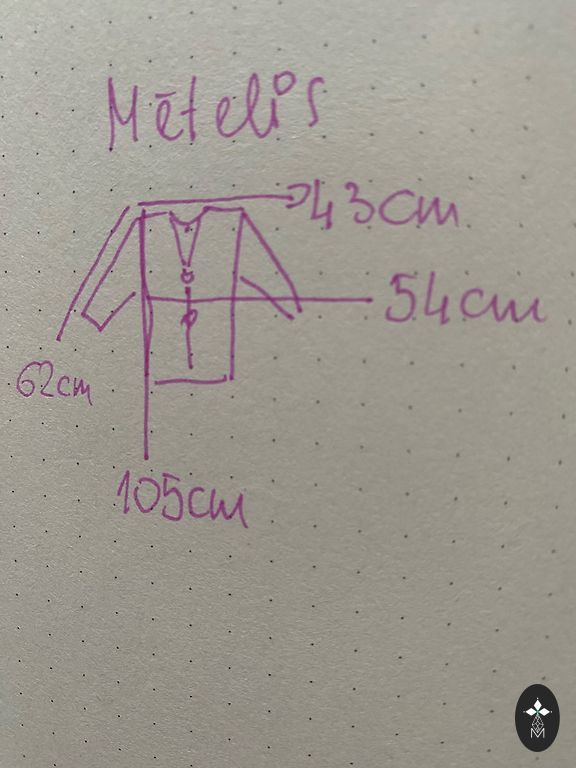 Mētelis
43cm
54cm
62cm
105cm
M